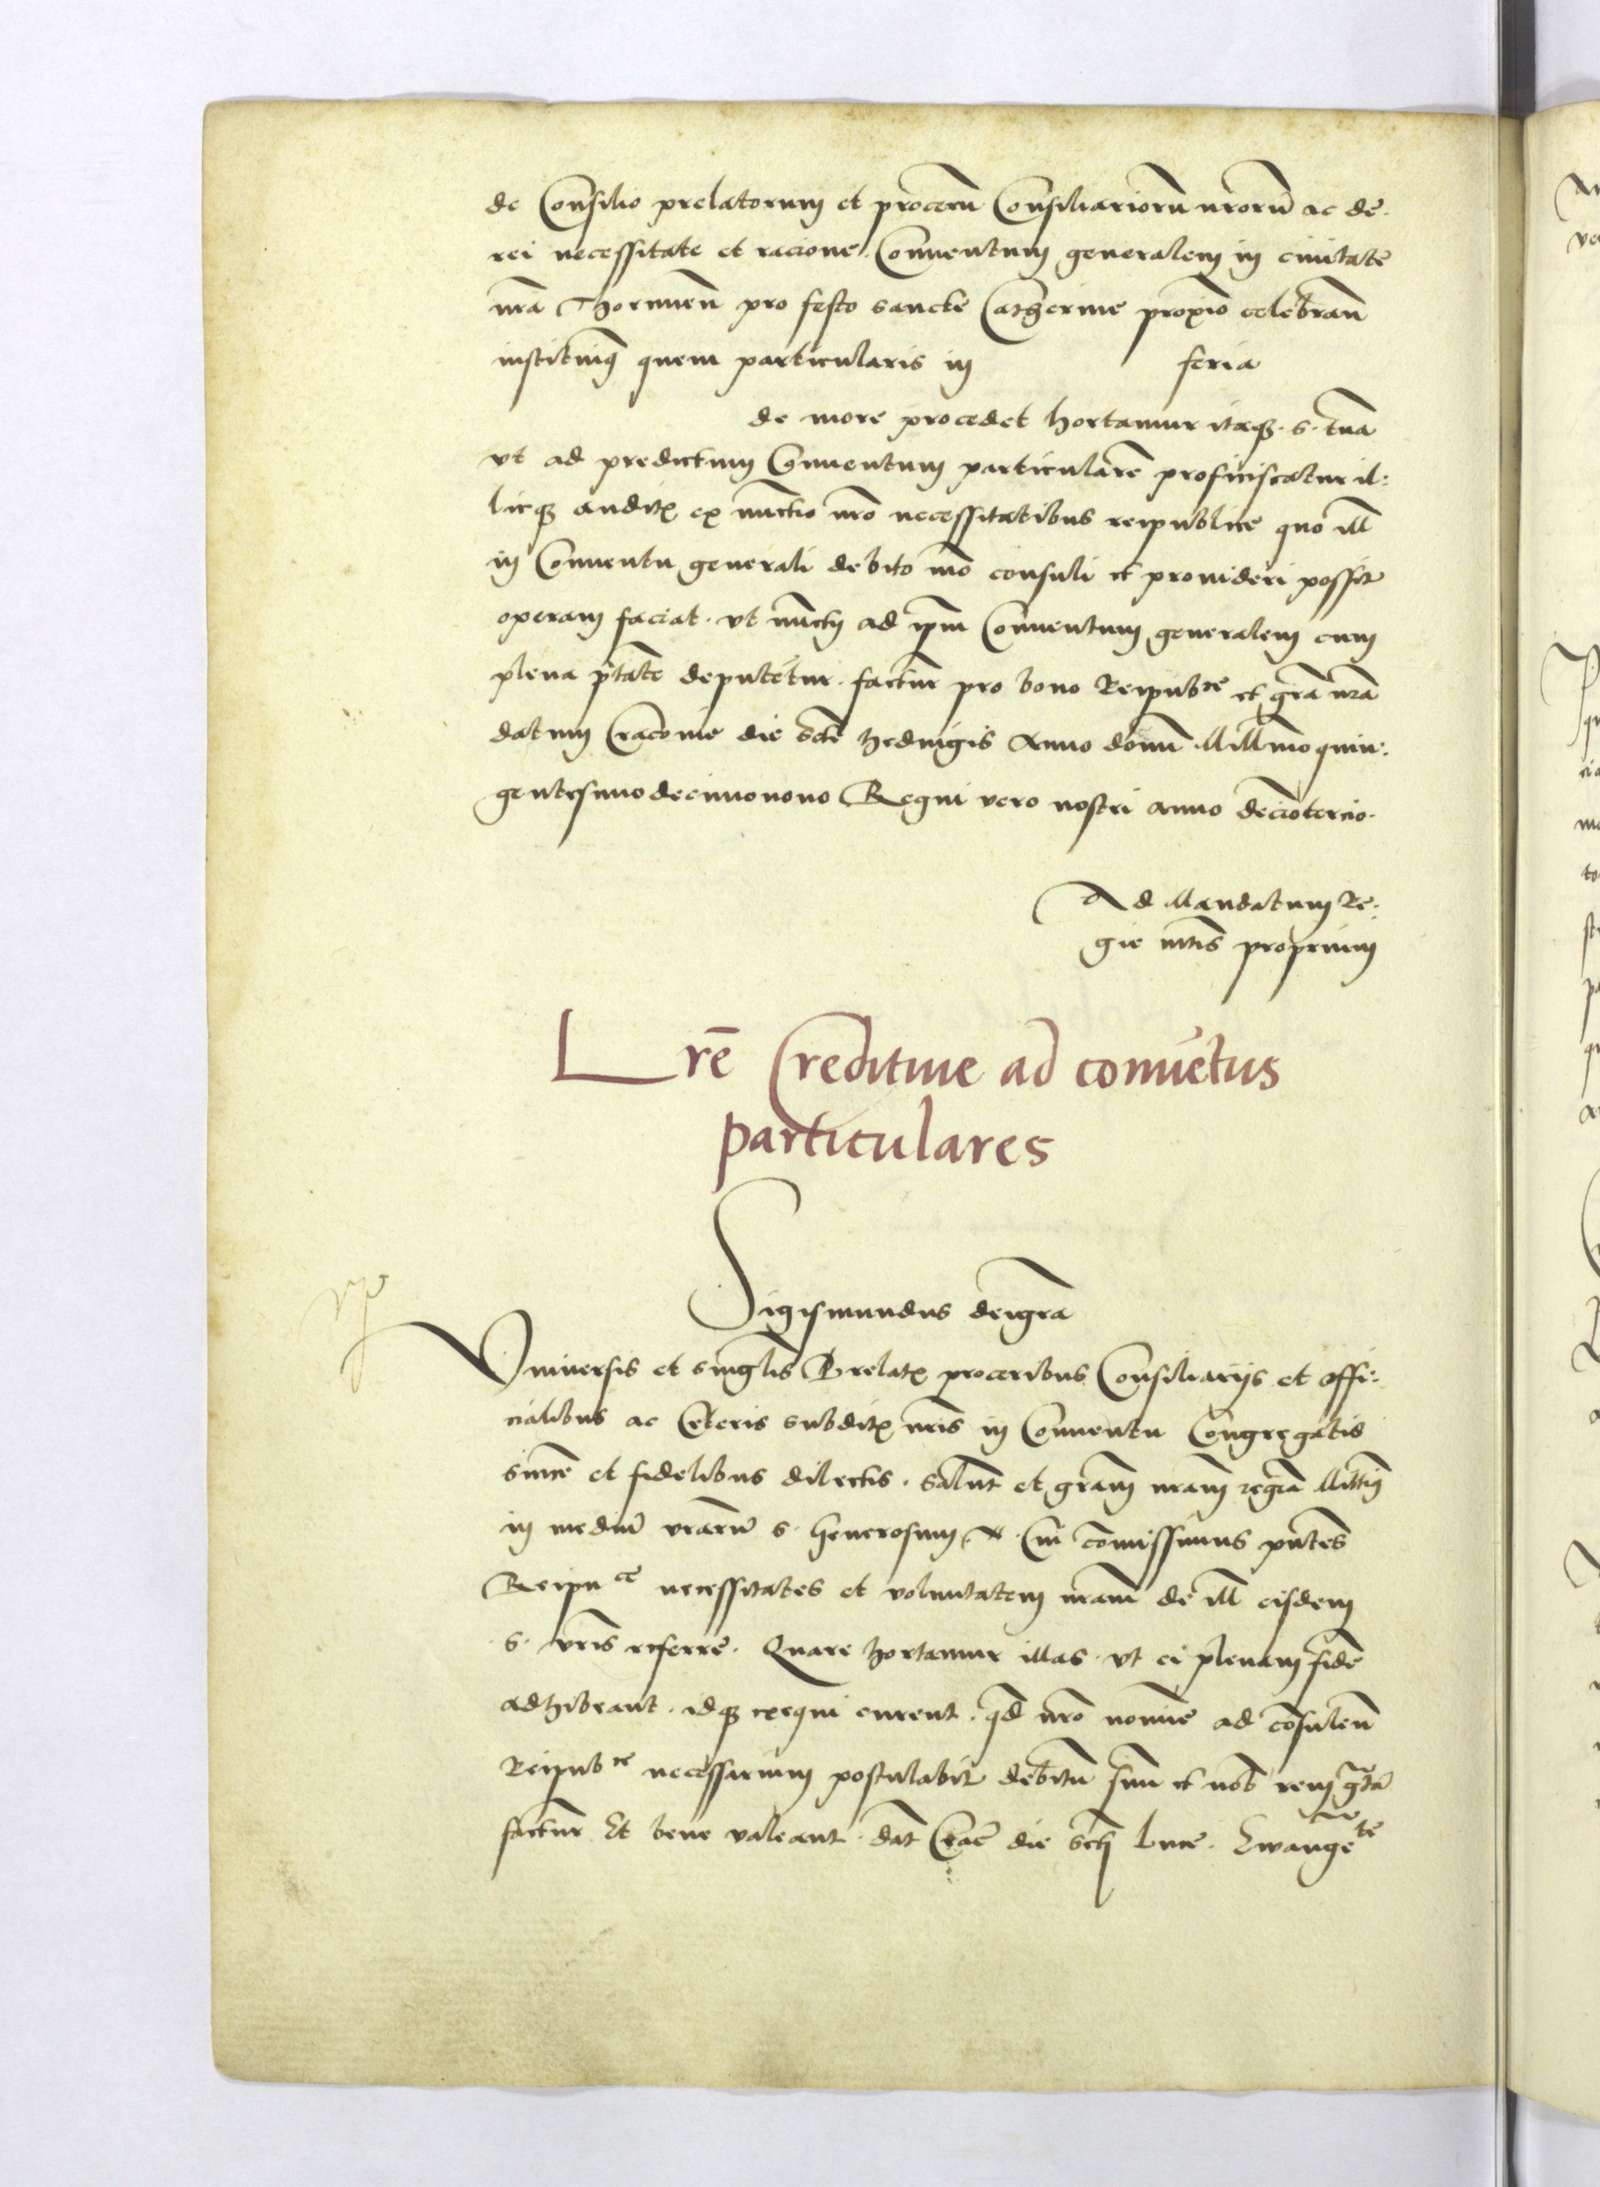 de Consilio prelatorum et procerū Consiliariorū nrorū ac de
rei necessitate et racione Conuentum generalem in ciuitatē
nrā Thorunen̄ pro festo sancte Catherine proxīo celebran̄
instituimꝰ quem particularis in feria
de more procedet hortamur itaqꝫ s. tuā
vt ad predictum Conuentum particularē proficiscatur il:
licqꝫ auditꝭ ex nūctio nrō necessitatibus reipublice quō ill̄
in Conuentu generali debito mō consuli et prouideri possit
operam faciat. vt nūctij ad ipm̄ Conuentum generalem cum
plena ptāte deputētur. factur̄ pro bono Reipubce et grā nrā
datum Cracouie die scte hedwigis Anno domī Millimo quin:
gentesimodecimonono Regni vero nostri anno deciōtercio.
Ad Mandatum Re:
gie mtis proprium
Lrē Creditiue ad conuētus
particulares
Sigismundus deigrā
Vniuersis et singlis Prelatꝭ proceribus Consiliarijs et offi:
cialibus ac Ceteris subditꝭ nris in Conuentu Congregatis
sincē et fidelibus dilectis. salut̄ et gram̄ nram̄ regiā Mittim̄
in mediū vrarū s. Generosum N. Cui comissimus pn̄tes
Reipuce necessitates et voluntatem nram̄ de ill̄ eisdem
s. vris referre. Quare hortamur illas. vt ei plenam fidē
adhibeant. idqꝫ exequi curent. qd̄ nrō nomīe ad cōsulen̄
Reipubce necessarium postulabit debitū suū et nob̄ rem grtā
factur̄ Et bene valeant. dat̄ Crac̄ die scti Luce. Ewangēte